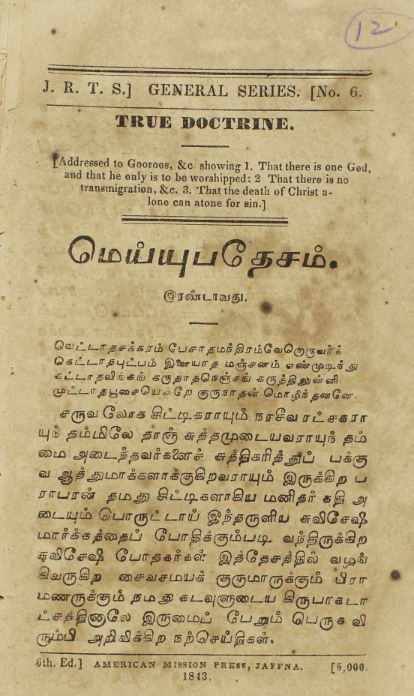 12
J. R. T. S.] GENERAL SERIES. [No. 6.
TRUE DOCTRINE.
[Addressed to Gooroos, &c. showing 1. That there is one God,
and that he only is to be worshipped: 2 That there is no
transmigration, &c. 3. That the death of Christ a-
lone can atone for sin.]
மெய்யுபதேசம்.
இரண்டாவது.
வெட்டாதசக்கரம் பேசாதமந்திரம்வேறொருவர்க்
கெட்டாதபுட்பம் இறையாத மஞ்சனம் எண்முடிந்து
கட்டாதலிங்கங் கருதாதநெஞ்சங் கருத்தினுன்னி
முட்டாதபூசையென்றே குருநாதன் மொழிந்தனனே.
சருவ லோக சிட்டிகராயும் நரசீவ ரட்சகரா
யுந் தம்மிலே தாஞ் சுத்தமுடையவராயுந் தம்
மை அடைந்தவர்களைச் சுத்திகரித்துப் பக்கு
வ ஆத்துமாக்களாக்குகிறவராயும் இருக்கிற ப
ராபரன் தமது சிட்டிகளாகிய மனிதர் கதி அ
டையும் பொருட்டாய் இந்தருளிய சுவிசேஷ
மார்க்கத்தைப் போதிக்கும்படி வந்திருக்கிற
சுவிசேஷ போதகர்கள் இத்தேசத்தில் வழங்
கிவருகிற சைவசமயக் குருமாருக்கும் பிரா
மணருக்கும் நமது கடவுளுடைய கிருபாகடா
ட்சத்தினாலே இருமைப் பேறும் பெருக வி
ரும்பி அறிவிக்கிற நற்செய்திகள்.
6th. Ed.] AMERICAN MISSION PRESS, JAFFNA, [5,000.
1843.